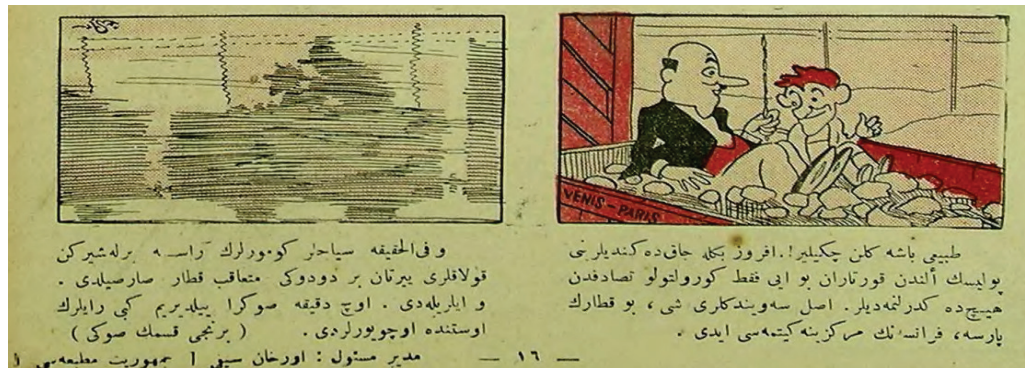 VENIS - PARIS
طبیعی باشه كلن چكیلیر!. افروز بكله جاق‌ده كندیلرینی
پولیسك ألندن قورتاران بو ایی فقط كورولتولو تصادفدن
هیچ‌ده كدرلنمه‌دیلر. اصل سه‌ویندكلری شی ، بو قطارك
پارسه، فرانسه‌نك مركزینه كیتمه‌سی ایدی .
و فی‌الحقیقه سیاحلر كومورلرك آراسنه یرله‌شیركن
قولاقلری ییرتان بر دودوكی متعاقب قطار صارصیلدی .
و ایلریله‌دی . اوچ دقیقه صوكرا ییلدیریم كبی رایلرك
اوستنده اوچویورلردی . ( برنجی قسمك صوكی )
— ١٦ —
مدیر مسئول : اورخان سیفی [ جمهوریت مطبعه‌سی